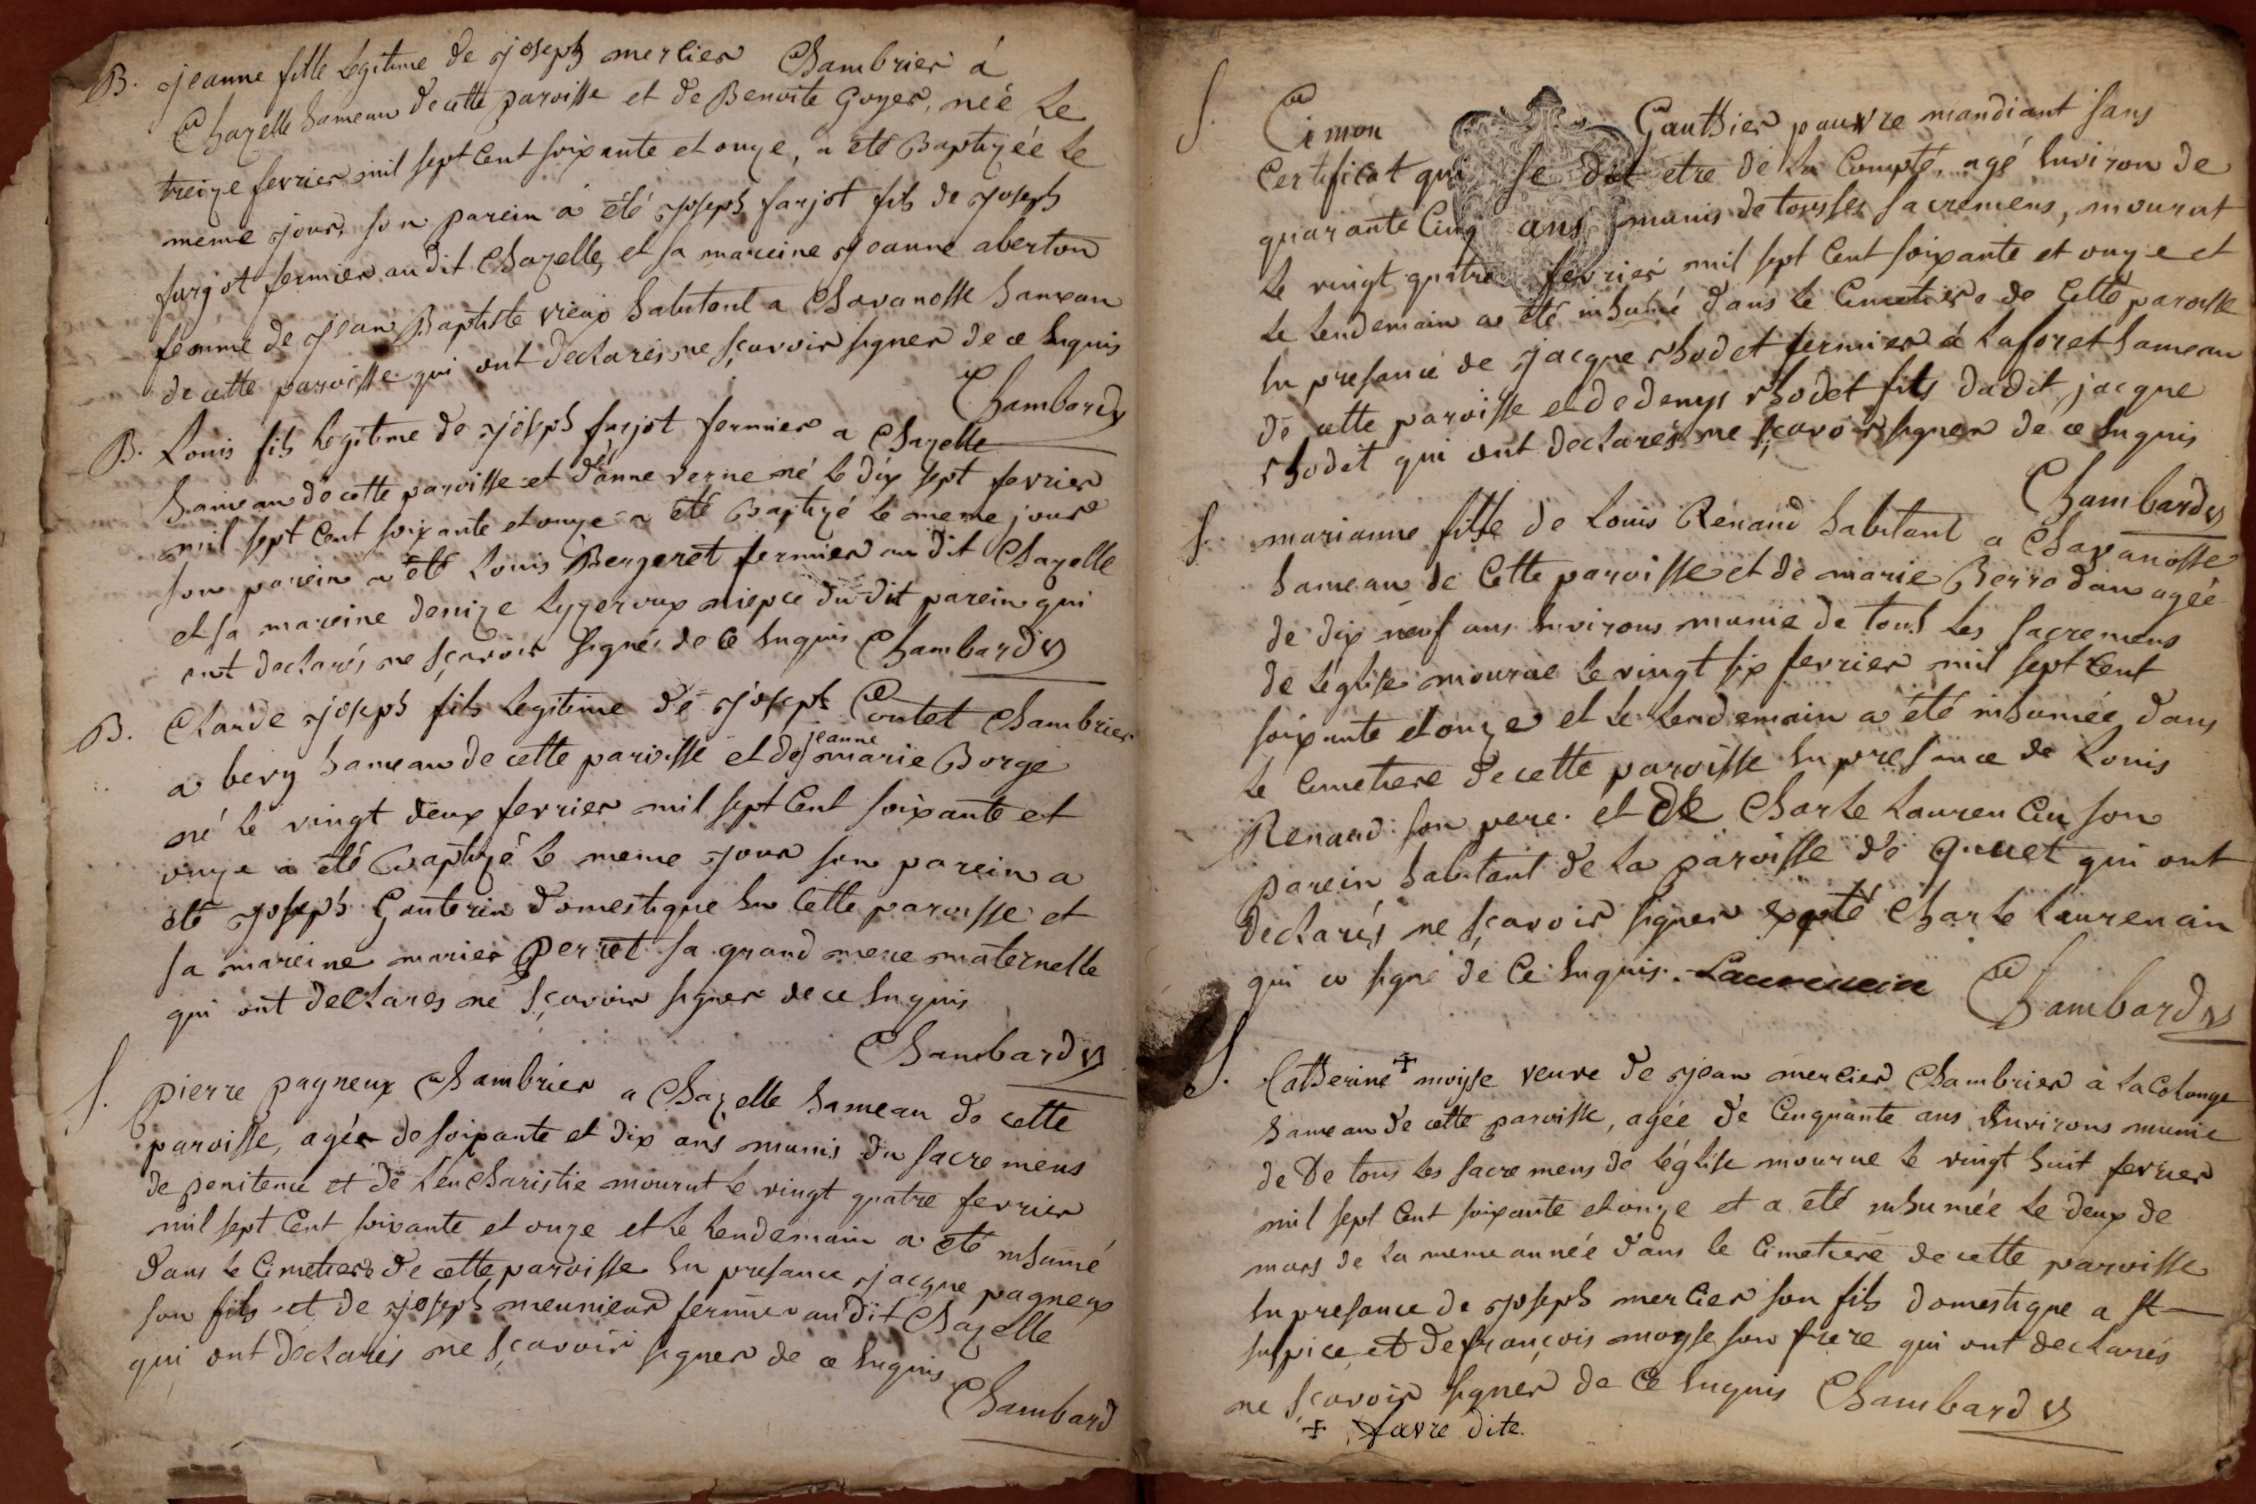 B. jeanne fille legitime de joseph mercier Chambrier á
Chazelle hameau de cette paroisse et de Benoite Goyer, née le
treize fevrier mil sept Cent soixante et onze, a été Baptizée le
meme jour, son parein á été joseph farjot fils de joseph
farjot fermier audit Chazelle, et sa mareine jeanne aberton
femme de jean Baptiste vieux habitant a Chavanosse hameau
de cette paroisse qui ont declarés ne sçavoir signer de ce Enquis
Chambard
B. Louis fils legitime de joseph farjot fermier a Chazelle
hameau de cette paroisse et d'anne verne né le dix sept fevrier
mil sept Cent soixante et onze a été Baptizé le meme jour
son parein a été Louis Bergeret fermier au dit Chazelle
et sa mareine denize Lyzeroux niepce du dit parein qui
ont declarés ne sçavoir signer de Ce Enquis Chambard
B. Claude joseph fils legitime de joseph Contet Chambrier
jeanne
a bery hameau de cette paroisse et de marie Borge
né le vingt deux fevrier mil sept Cent soixante et
onze a été Baptizé le meme jour son parein a
été joseph Gauterin domestique En Cette paroisse et
sa mareine marie perret sa grand mere maternelle
qui ont declares ne sçavoir signer de ce Enquis
Chambard
S. pierre pagneux Chambrier a Chazelle hameau de cette
paroisse, agée de soixante et dix ans munis du sacremens
de penitence et de L'eucharistie mourut le vingt quatre fevrier
mil sept Cent soixante et onze et le lendemain a été inhumé
dans le Cimetiere de cette paroisse En presance jacque pagneux
son fils et de joseph meunieur fermier audit Chazelle
qui ont declarés ne sçavoir signer de ce Enquis
Chambard
S. Cimon Gauthier pauvre mandiant sans
Certificat qui se dit etre de la Compté, agé Environ de
quarante Cinq ans munis de tous les sacremens, mourut
le vingt quatre fevrier mil sept Cent soixante et onze et
le lendemain a été inhumé dans le Cimetiere de Cette paroisse
En presance de jacque rhodet fermier á Laforet hameau
de cette paroisse et de denys rhodet fils dudit jacque
rhodet qui ont declarés ne sçavoir signer de ce Enquis
Chambard
S. marianne fille de Louis Renaud habitant a Chavanosse
hameau de Cette paroisse et de marie Berrodan agée
de dix neuf ans Environs munie de tous les sacremens
de leglise mourue le vingt six fevrier mil sept Cent
soixante et onze et le lendemain a été inhumée dans
le Cimetiere de cette paroisse En presance de Louis
Renaud son pere et de Charle Laurencin son
parein habitant de la paroisse de qui ont
declarés ne sçavoir signer expté Charle Laurencin
qui a signé de Ce Enquis. Laurencin
Chambard
S. Catherine + moysse veuve de jean mercier Chambrier à La Colonge
hameau de cette paroisse, agée de Cinquante ans Environs munie
de De tous les sacremens de l'église mourue le vingt huit fevrier
mil sept Cent soixante et onze et a été inhumée le deux de
mars de la meme année dans le Cimetiere de cette paroisse
En presance de joseph mercier son fils domestique a st
sulpice, et de françois moysse son frere qui ont declarés
ne sçavoir signer de Ce Enquis Chambard
+ favre dite.